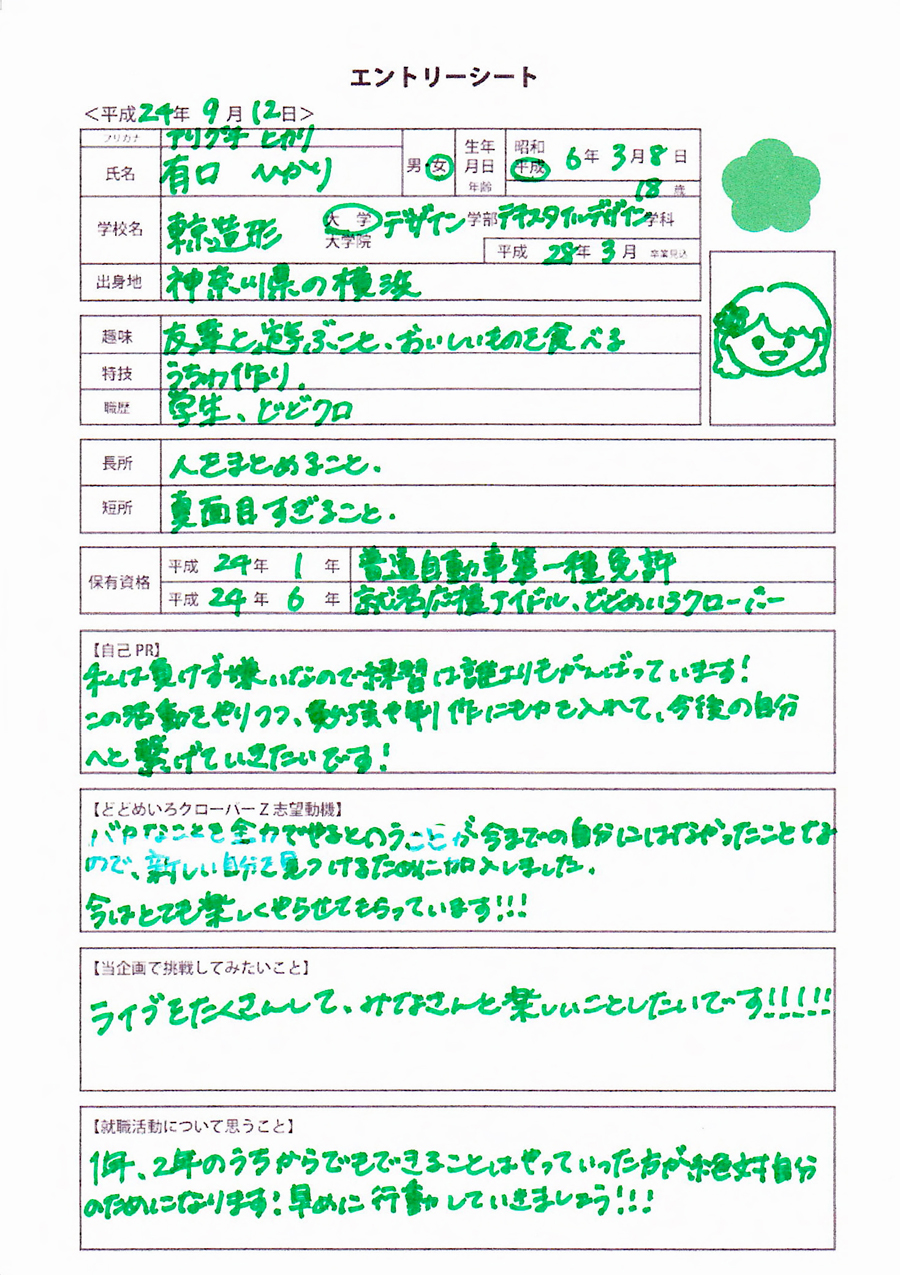 エントリーシート
<平成24年 9月 12日>
フリカナ アリグチ ヒカリ
氏名 有口 ひかり
男・女 生年月日 昭和 平成 6年 3月 8日
年齢 18歳
学校名 東京造形 大学 デザイン 学部 テキスタイルデザイン 学科
大学院
平成 28年 3月 卒業見込
出身地 神奈川県の横浜
趣味 友達と遊ぶこと、おいしいものを食べる
特技 うちわ作り.
職歴 学生、どどクロ
長所 人をまとめること.
短所 真面目すぎること.
保有資格
平成 24年 1 年 普通自動車第一種免許
平成 24年 6 年 就活応援アイドル、どどめいろクローバー
【自己PR】
私は負けず嫌いなので練習は誰よりもがんばっています!
この活動をやりつつ、勉強や制作にも力を入れて、今後の自分
へと繋げていきたいです!
【どどめいろクローバーZ志望動機】
バカなことを全力でやるということが今までの自分にはなかったことな
ので、新しい自分を見つけるために加入しました.
今はとても楽しくやらせてもらっています!!!
【当企画で挑戦してみたいこと】
ライブをたくさんして、みなさんと楽しいことしたいです!!!!!
【就職活動について思うこと】
1年、2年のうちからでもできることはやっていった方が絶対自分
のためになります!早めに行動していきましょう!!!